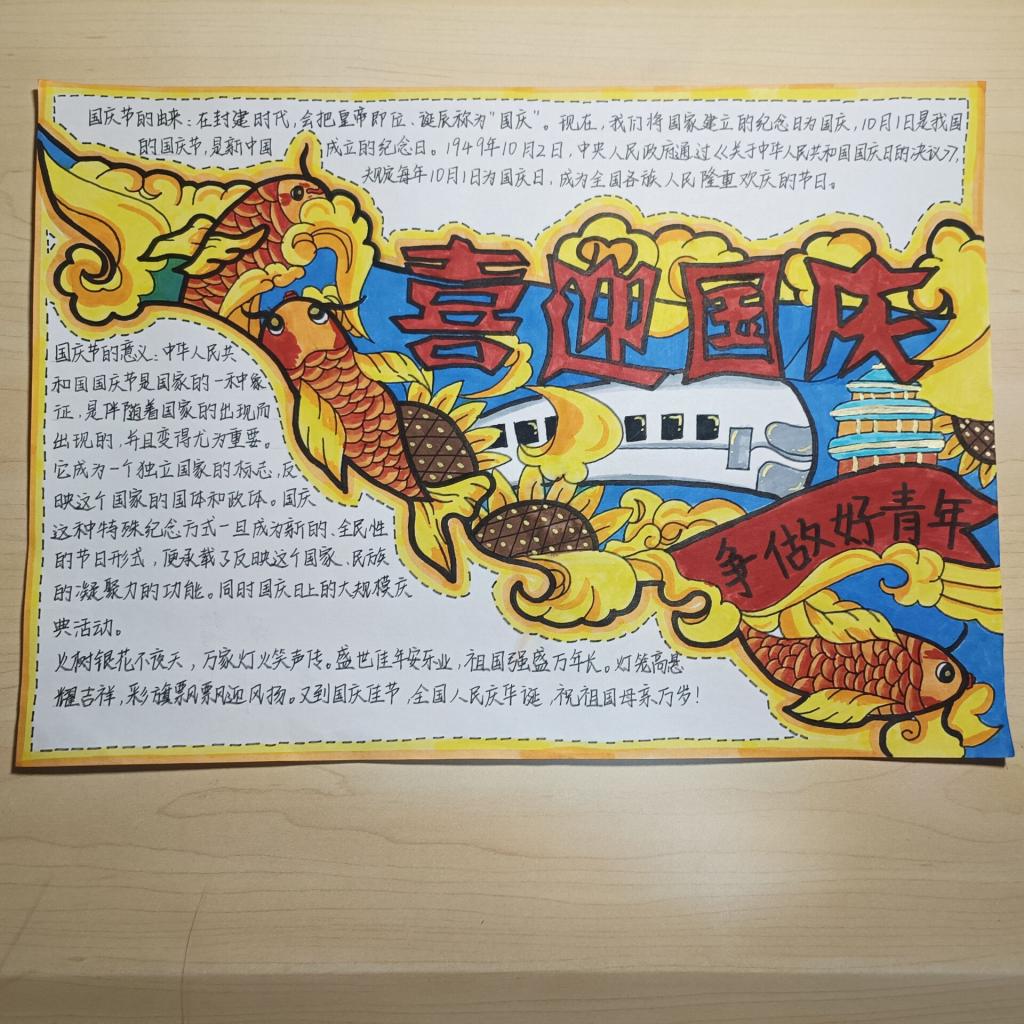 国庆节的由来：在封建时代，会把皇帝即位、诞辰称为"国庆"。现在，我们将国家建立的纪念日为国庆，10月1日是我国
的国庆节，是新中国 成立的纪念日。1949年10月2日，中央人民政府通过《关于中华人民共和国国庆日的决议》，
规定每年10月1日为国庆日，成为全国各族人民隆重欢庆的节日。
喜迎国庆
国庆节的意义：中华人民共
和国国庆节是国家的一种象
征，是伴随着国家的出现而
出现的，并且变得尤为重要。
它成为一个独立国家的标志，反
映这个国家的国体和政体。国庆
这种特殊纪念方式一旦成为新的、全民性
的节日形式，便承载了反映这个国家、民族
的凝聚力的功能。同时国庆日上的大规模庆
典活动。
争做好青年
火树银花不夜天，万家灯火笑声传。盛世佳年安乐业，祖国强盛万年长。灯笼高悬
耀吉祥，彩旗飘飘迎风扬。又到国庆佳节，全国人民庆华诞，祝祖国母亲万岁！